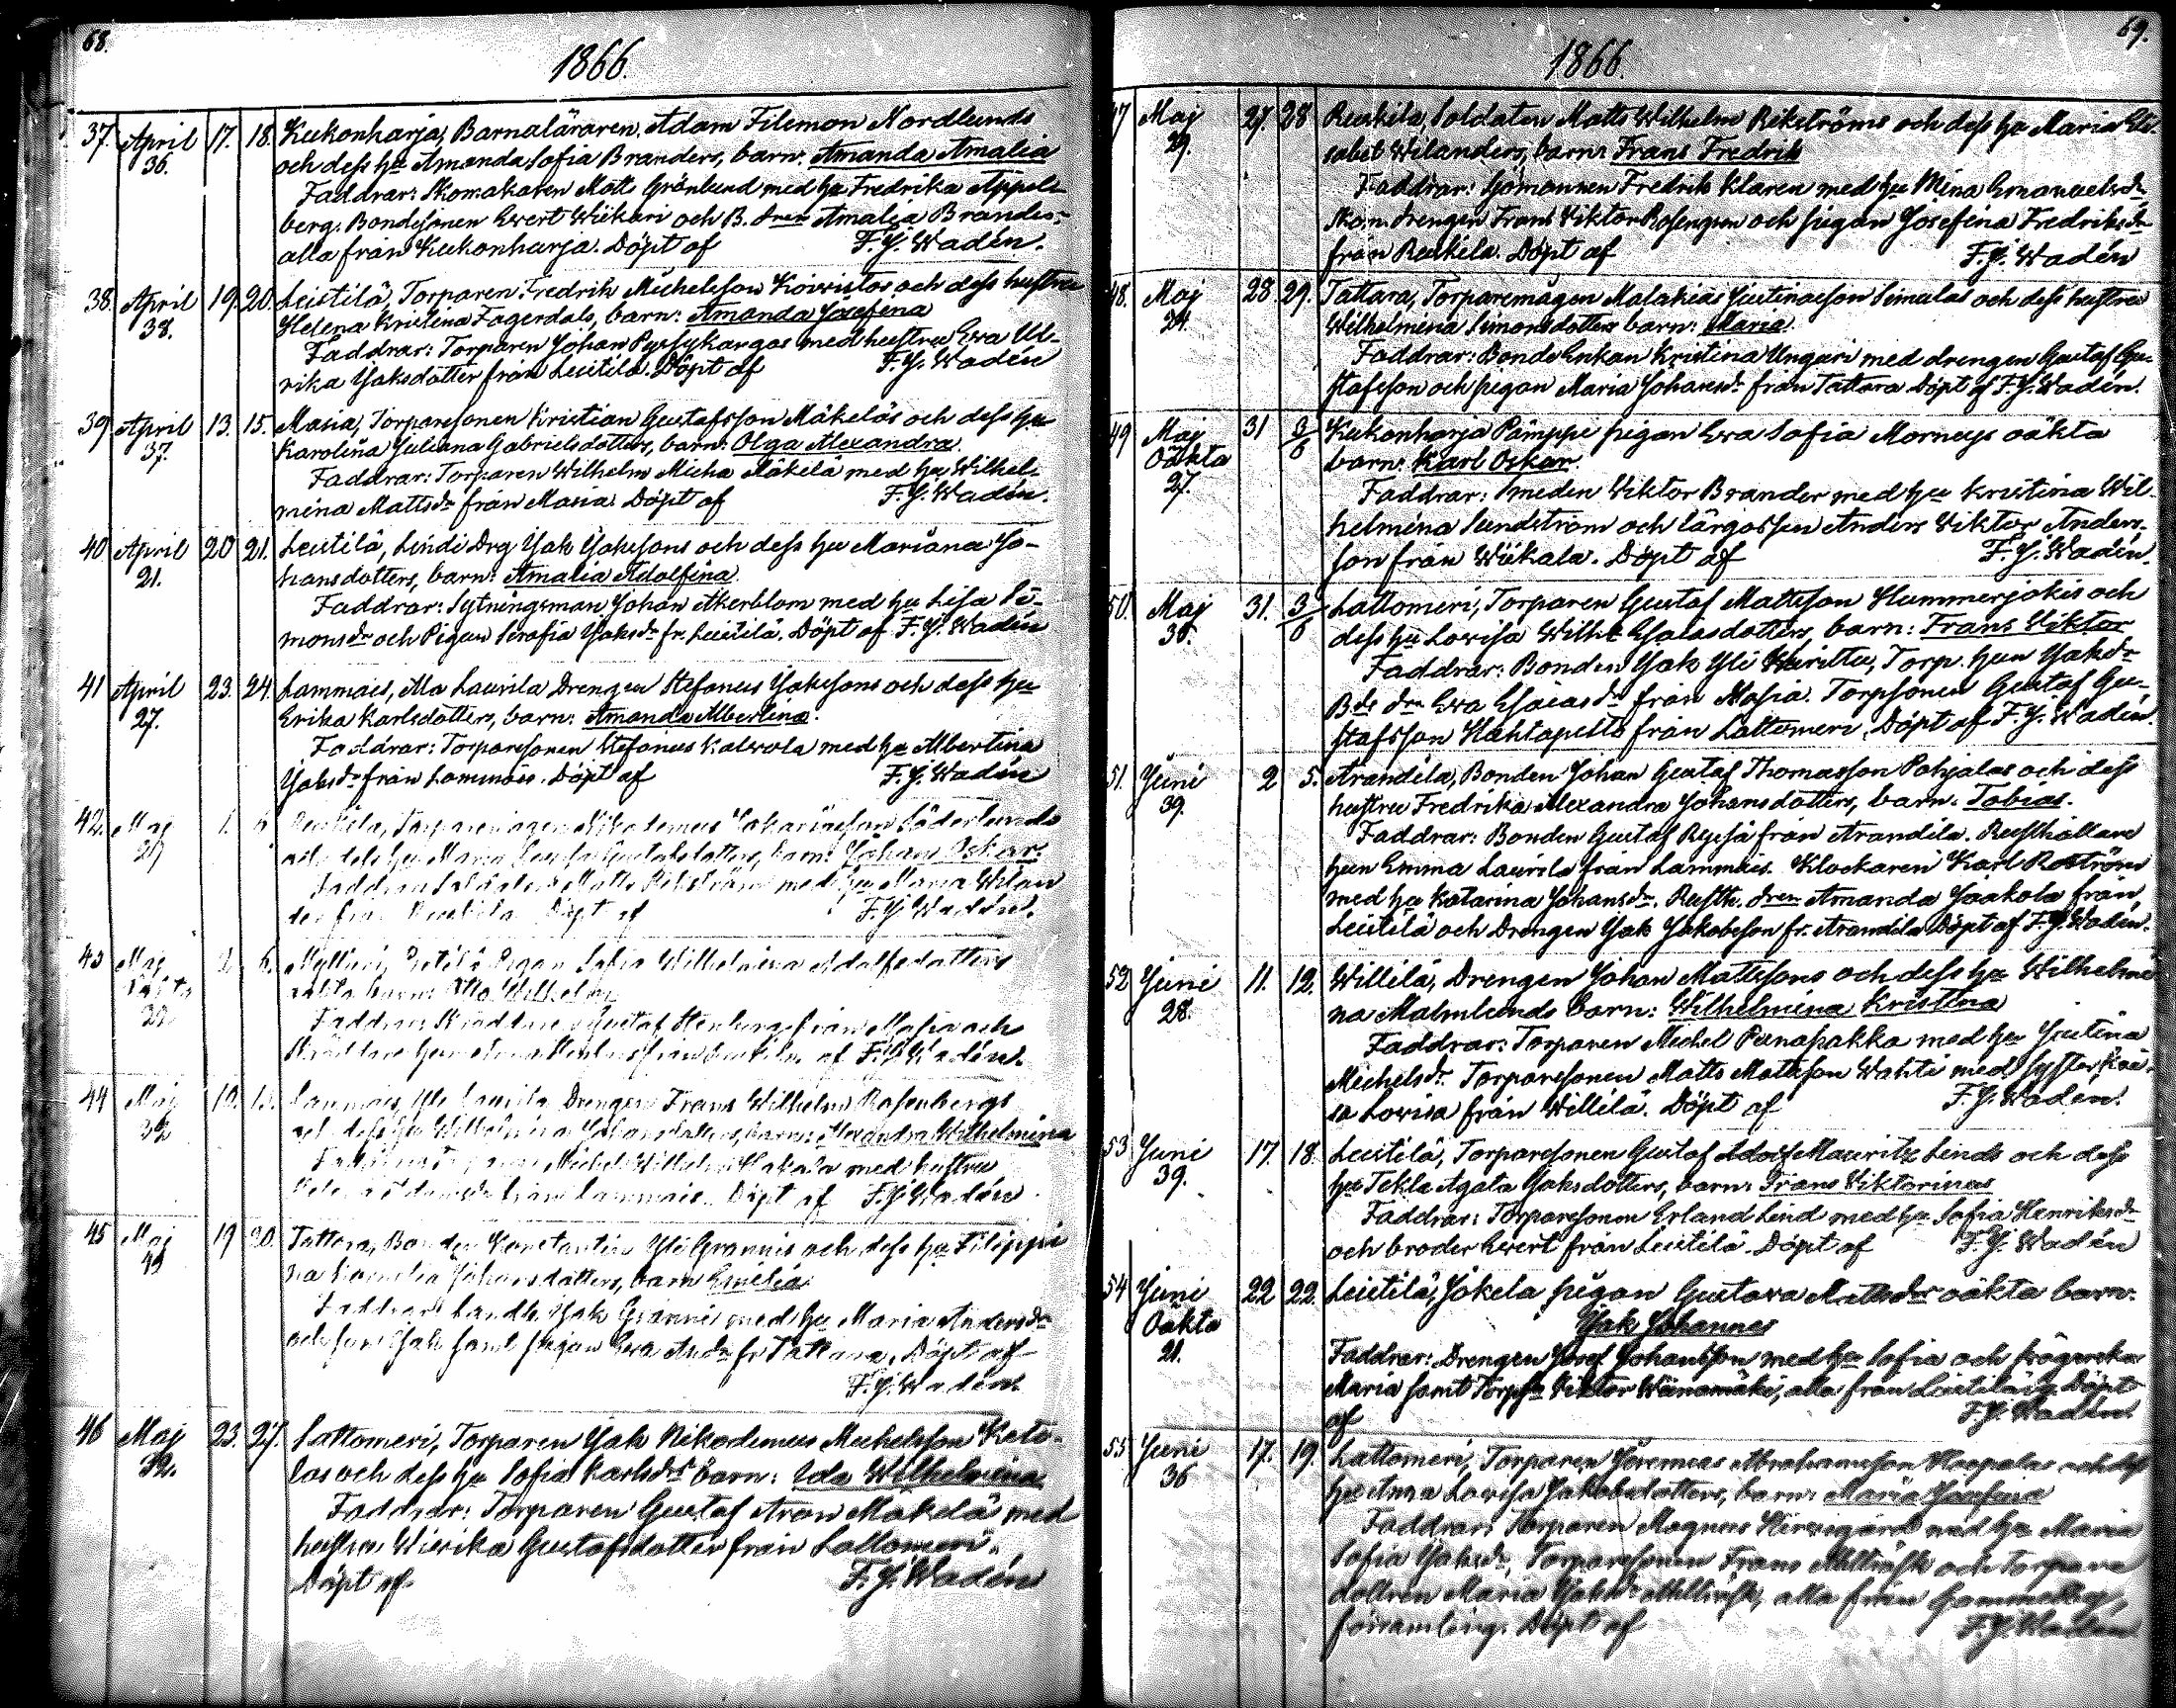 68.
1866.
37. April 17. 18. Kukonharja, Barnaläraren Adam Filemon Nordlunds
36. och dess hu Amanda Sofia Branders, barn: Amanda Amalia
Faddrar: Skomakaren Matts Grönlund med hu Fredrika Appel-
berg. Bondesonen Evert Wiikari och B. dren Amalia Brander
alla från Kukonharja. Döpt af F. J. Wadén.
38. April 19. 20. Leistilä, Torparen Fredrik Michelsson Koivistos och dess hustru
38. Helena Kristina Fagerdals, barn: Amanda Josefina
Faddrar: Torparen Johan Pyssykangas med hustru Eva Ul-
rika Jaksdotter från Leistilä. Döpt af F. J. Wadén
39 April 13. 15. Masia, Torparesonen Kristian Gustafsson Mäkeläs och dess hu
37. Karolina Juliana Gabrielsdotters, barn: Olga Alexandra.
Faddrar: Torparen Wilhelm Micha Mäkelä med hu Wilhel-
mina Mattsdr från Masia. Döpt af F. J. Wadén.
40 April 20 21. Leistilä, Lindi Drg Jak Jakssons och dess hu Mariana Jo-
21. hansdotters, barn: Amalia Adolfina.
Faddrar: Sytningsman Johan Akerblom med hu Lisa Si-
monsdr och Pigan Serafia Jaksdr fr. Leistilä. Döpt af F. J. Wadén
41 April 23. 24. Lammais, Ala Laurila Drengen Stefanus Jakssons och dess hu
27. Erika Karlsdotters, barn: Amanda Albertina.
Faddrar: Torparesonen Stefanus Kalvola med hu Albertina
Jaksdr från Lammais. Döpt af F. J. Wadén
42. Maj 1. 6 Söderlunds
och dess hu Maria Gustafsdotters, barn: Johan Oskar.
Faddrar: Soldaten Matts Rikström med hu Maria Wilan
der från Ruskila Döpt af F. J. Wadén.
43 Maj 2. 6. Pigan Sofia Wilhelmina Adolfsdotters
oäkta barn: Otto Wilhelm
22. Faddrar: Gustaf Stenberg från Masia och
af F. J. Wadén.
44 Maj Lammais, Yli Laurila Drengen Frans Wilhelm Rosenbergs
och dess hu Wilhelmina Johansdotters, barn: Alexandra Wilhelmina
Michel Wilhelm Hakala med hustru
från Lammais. Döpt af F. J. Wadén
45 Maj 19 20. Tattara, Bonden Konstantin Yli Grannis och dess hu Filippi
na Kornelia Johansdotters, barn Emelia.
Faddrar: Jak Granni med hu Maria Andersdr
och son Jak samt pigan Eva Andr fr Tattara. Döpt af
F. J. Wadén.
46 Maj 23. 27. Lattomeri, Torparen Jak Nikodemus Michelsson Keto-
32. las och dess hu Sofia Karlsdrs barn: Ida Wilhelmina
Faddrar: Torparen Gustaf Aron Mäkelä med
hustru Wivika Gustafsdotter från Lattomeri.
Döpt af F. J. Wadén
69.
1866.
47 Maj 27. 28 Ruskila, Soldaten Matts Wilhelm Rikströms och dess hu Maria Eli-
29. sabet Wilanders, barn: Frans Fredrik
Faddrar: Sjömannen Fredrik Klaren med hu Mina Emanuelsdr
Skom. drengen Frans Viktor Rosengren och pigan Josefina Fredriksdr
från Ruskila. Döpt af F. J. Wadén
48. Maj 28 29. Tattara, Torparemågen Malakias Justinasson Simulas och dess hustru
24. Wilhelmina Simonsdotters barn: Maria.
Faddrar: Bonde Enkan Kristina Ungari med drengen Gustaf Gu-
stafsson och pigan Maria Johansdr från Tattara Döpt af F. J. Wadén.
49 Maj 31 3/6 Kukonharja Pämppi pigan Eva Sofia Morneys oäkta
Oäkta barn: Karl Oskar.
27. Faddrar: Smeden Viktor Brander med hu Kristina Wil-
helmina Sundström och lärgossen Anders Viktor Anders-
son från Wiikala. Döpt af F. J. Wadén.
50. Maj 31. 3/6 Lattomeri, Torparen Gustaf Mattsson Hummerjokis och
36. dess hu Lovisa Wilh. Esaiasdotters, barn: Frans Viktor
Faddrar: Bonden Jak Yli Kurittu, Torp. hun Jaksdr
Bde drn Eva Esaiasdr från Masia. Torpsonen Gustaf Gu-
stafsson Hahtapelto från Lattomeri. Döpt af F. J. Wadén.
51. Juni 2 5. Arandila, Bonden Johan Gustaf Thomasson Pohjalas och dess
39. hustru Fredrika Alexandra Johansdotters, barn: Tobias.
Faddrar: Bonden Gustaf Regesä från Arandila. Rusthållare
hun Emma Laurila från Lammais. Klockaren Karl Roström
med hu Katarina Johansdr. Rusth. dren Amanda Jaakola från
Leistilä och Drengen Jak Jakobsson fr. Arandila Döpt af F. J. Wadén.
52 Juni 11. 12. Willilä, Drengen Johan Mattssons och dess hu Wilhelmi
28. na Malmlunds barn: Wilhelmina Kristina
Faddrar: Torparen Michel Punapakka med hu Justina
Michelsdr. Torparesonen Matts Mattsson Wahti med syster Kai-
sa Lovisa från Willilä. Döpt af F. J. Wadén.
53 Juni 17. 18 Leistilä, Torparesonen Gustaf Adolf Mauritz Linds och dess
39. hu Tekla Agata Jaksdotters, barn: Frans Viktorinus
Faddrar: Torparesonen Erland Lind med hu Sofia Henriksdr
och broder Evert från Leistilä. Döpt af F. J. Wadén
54 Juni 22 22. Leistilä, Jokela pigan Gustava Mattsdrs oäkta barn:
Oäkta Jak Johannes
21. Faddrar: Drengen Josef Johansson med hu Sofia och
Maria samt Viktor Wainomäki, alla från Leistilä. Döpt
af F. J. Wadén.
55 Juni 17. 19. Lattomeri, Torparen Jeremias Abrahamsson Haapalas och dess
36 hu Anna Lovisa Jakobsdotters, barn: Maria Josefina
Faddrar: Torparen Magnus med hu Maria
Sofia Jaksdr, Torparesonen Frans och Torpare
dottren Maria Jaksdr alla från Gammelby
församling. Döpt af F. J. Wadén